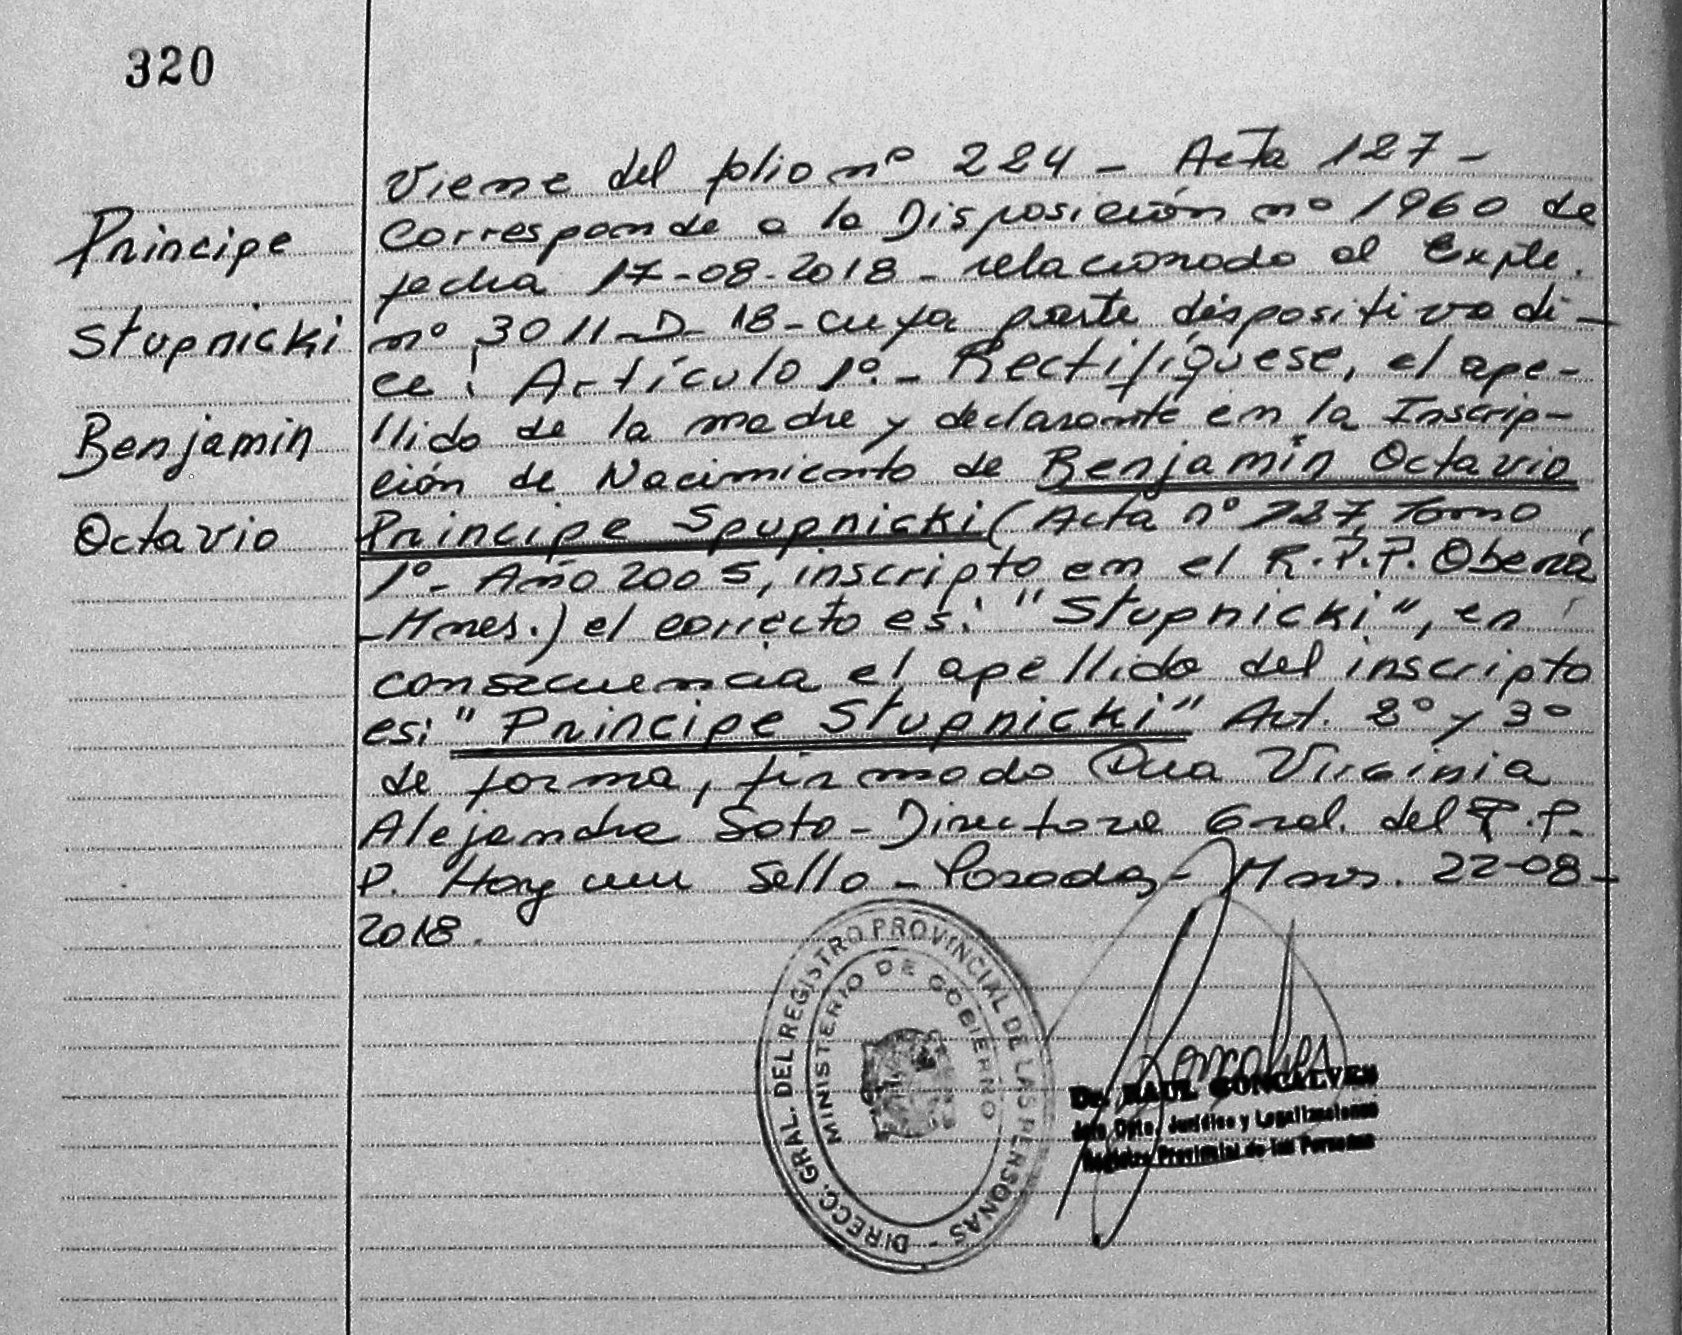 320
Principe
Stupnicki
Benjamin
Octavio
Viene del folio nº 224 - Acta 127 -
Corresponde a la Disposición nº 1960 de
fecha 17-08-2018 - relacionado al Expte.
nº 3011-D-18 - cuya parte dispositiva di-
ce: Artículo 1º.- Rectifíquese, el ape-
llido de la madre y declarante en la Inscrip-
ción de Nacimiento de Benjamin Octavio
Principe Spupnicki (Acta nº 127, Tomo
1º- Año 2005, inscripto en el R.P.P. Oberá
- Mnes.) el correcto es: "Stupnicki", en
consecuencia el apellido del inscripto
es: "Principe Stupnicki" Art. 2º y 3º
de forma, firmado Dra Virginia
Alejandra Soto - Directora Gral. del R.P.
P. Hay un Sello - Posadas - Mnes. 22-08-
2018.
DIRECC. GRAL. DEL REGISTRO PROVINCIAL DE LAS PERSONAS -
MINISTERIO DE GOBIERNO
Dr. RAUL GONCALVES
Jefe Dpto. Jurídico y Legalizaciones
Registro Provincial de las Personas